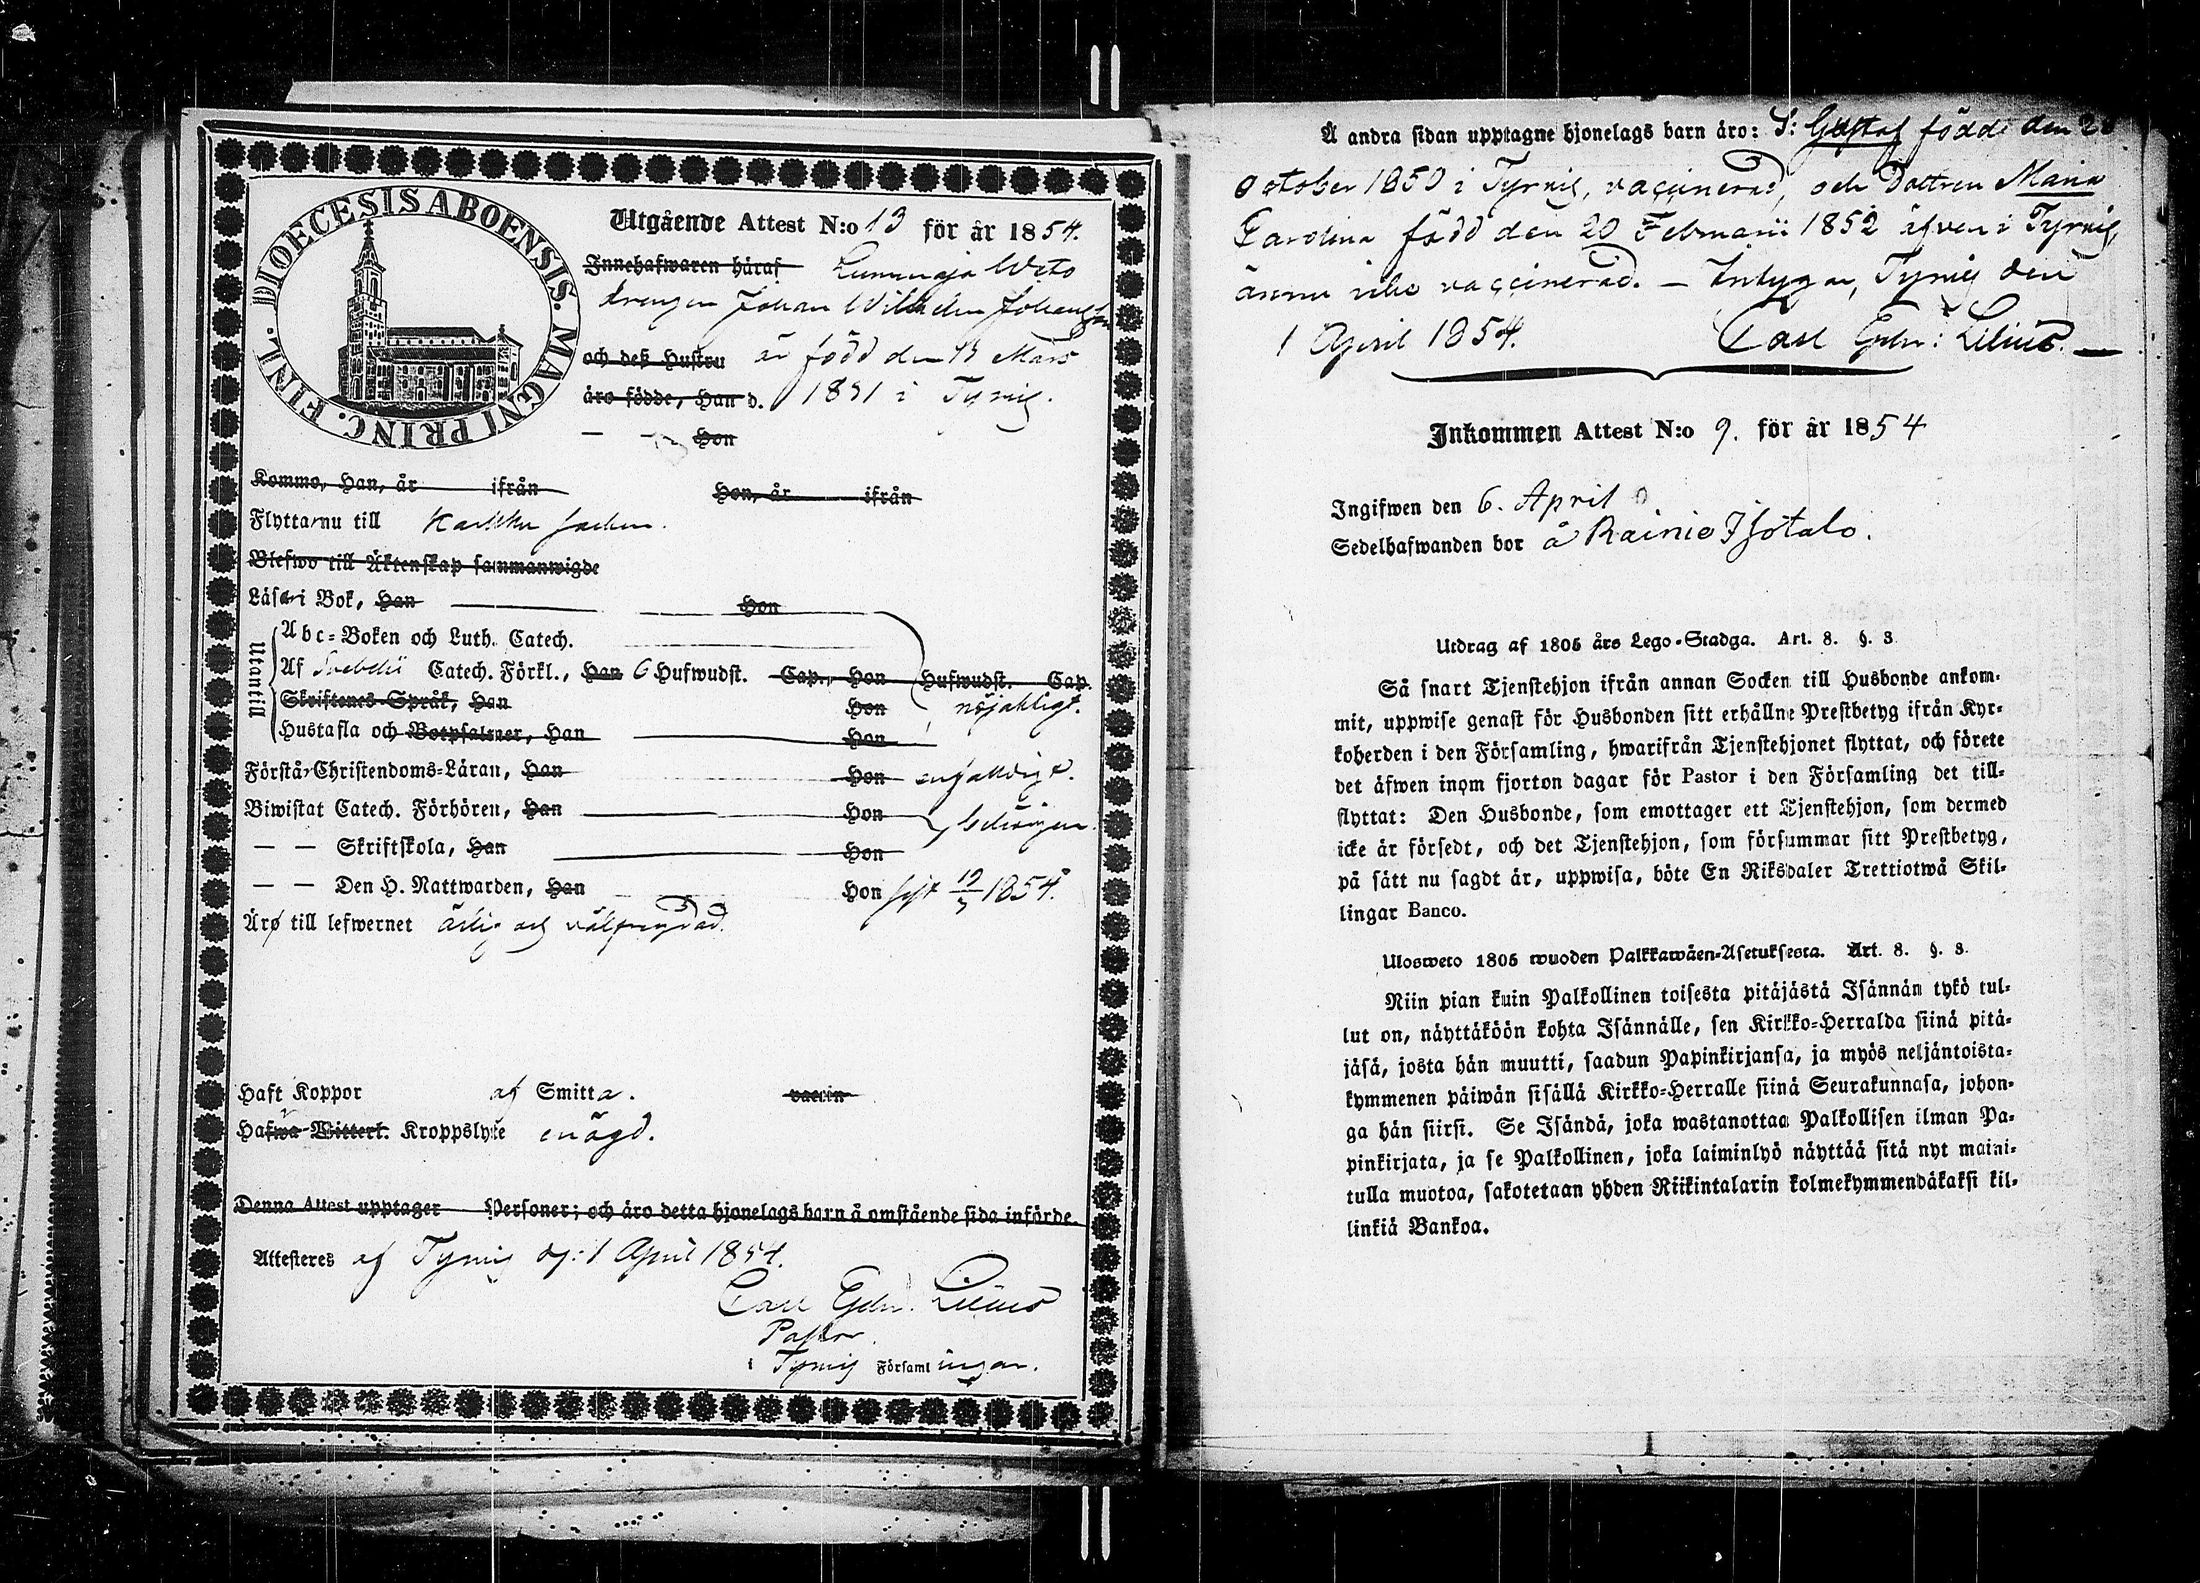 DIOECESIS ABOENSIS. MAGNI PRINC. FINL.
Utgående Attest N:o 13 för år 1854.
Innehafwaren häraf
drengen Johan Wilhelm Johansson
och deß Hustru är född den 13 Mars
äro födde, Han d. 1831 i Tyrnis.
— — Hon
Kommo, Han, år ifrån Hon, år ifrån
Flyttarnu till Karkku socken.
Blefwo till Äktenskap sammanwigde
Läsa i Bok, Han Hon
Utantill
Abc-Boken och Luth. Catech.
Af Svebelii Catech. Förkl., Han 6 Hufwudst. Cap., Hon Hufwudst. Cap.
Skriftenes Språk, Han Hon nöjaktligt.
Hustafla och Botpsalmer, Han Hon
Förstår Christendoms-Läran, Han Hon enfaldigt.
Biwistat Catech. Förhören, Han Hon
— — Skriftskola, Han Hon behörigen.
— — Den H. Nattwarden, Han Hon sist 19/3 1854.
Äro till lefwernet ärlig och välfrejdad.
Haft Koppor af Smitta. vaccin
Hafwa Witterl. Kroppslyte enögd.
Denna Attest upptager Personer; och äro detta hjonelags barn å omstående sida införde.
Attesteres af Tyrnis d: 1 April 1854.
Carl Gdn. Lilius
Pastor
i Tyrnis Församlingar.
Å andra sidan upptagne hjonelags barn äro: S: Gustaf född den
October 1850 i Tyrnis, vaccinerad, och Dottren Maria
Carolina född den 20 Februarii 1852 äfven i Tyrnis,
ännu icke vaccinerad. — Intygar, Tyrnis den
1 April 1854. Carl Gdn: Lilius.
Inkommen Attest N:o 9. för år 1854
Ingifwen den 6. April
Sedelhafwanden bor å Rainio Isotalo.
Utdrag af 1805 års Lego-Stadga. Art. 8. §. 3.
Så snart Tjenstehjon ifrån annan Socken till Husbonde ankom-
mit, uppwise genast för Husbonden sitt erhållne Prestbetyg ifrån Kyr-
koherden i den Församling, hwarifrån Tjenstehjonet flyttat, och förete
det äfwen inom fjorton dagar för Pastor i den Församling det till-
flyttat: Den Husbonde, som emottager ett Tjenstehjon, som dermed
icke är försedt, och det Tjenstehjon, som försummar sitt Prestbetyg,
på sätt nu sagdt är, uppwisa, böte En Riksdaler Trettiotwå Skil-
lingar Banco.
Ulosweto 1805 wuoden Palkkawäen-Asetuksesta. Art. 8. §. 3.
Niin pian kuin Palkollinen toisesta pitäjästä Isännän tykö tul-
lut on, näyttäköön kohta Isännälle, sen Kirkko-Herralda siinä pitä-
jäsä, josta hän muutti, saadun Papinkirjansa, ja myös neljäntoista-
kymmenen päiwän sisällä Kirkko-Herralle siinä Seurakunnasa, johon-
ga hän siirsi. Se Isändä, joka wastanottaa Palkollisen ilman Pa-
pinkirjata, ja se Palkollinen, joka laiminlyö näyttää sitä nyt maini-
tulla muotoa, sakotetaan yhden Riikintalarin kolmekymmendäkaksi kil-
linkiä Bankoa.